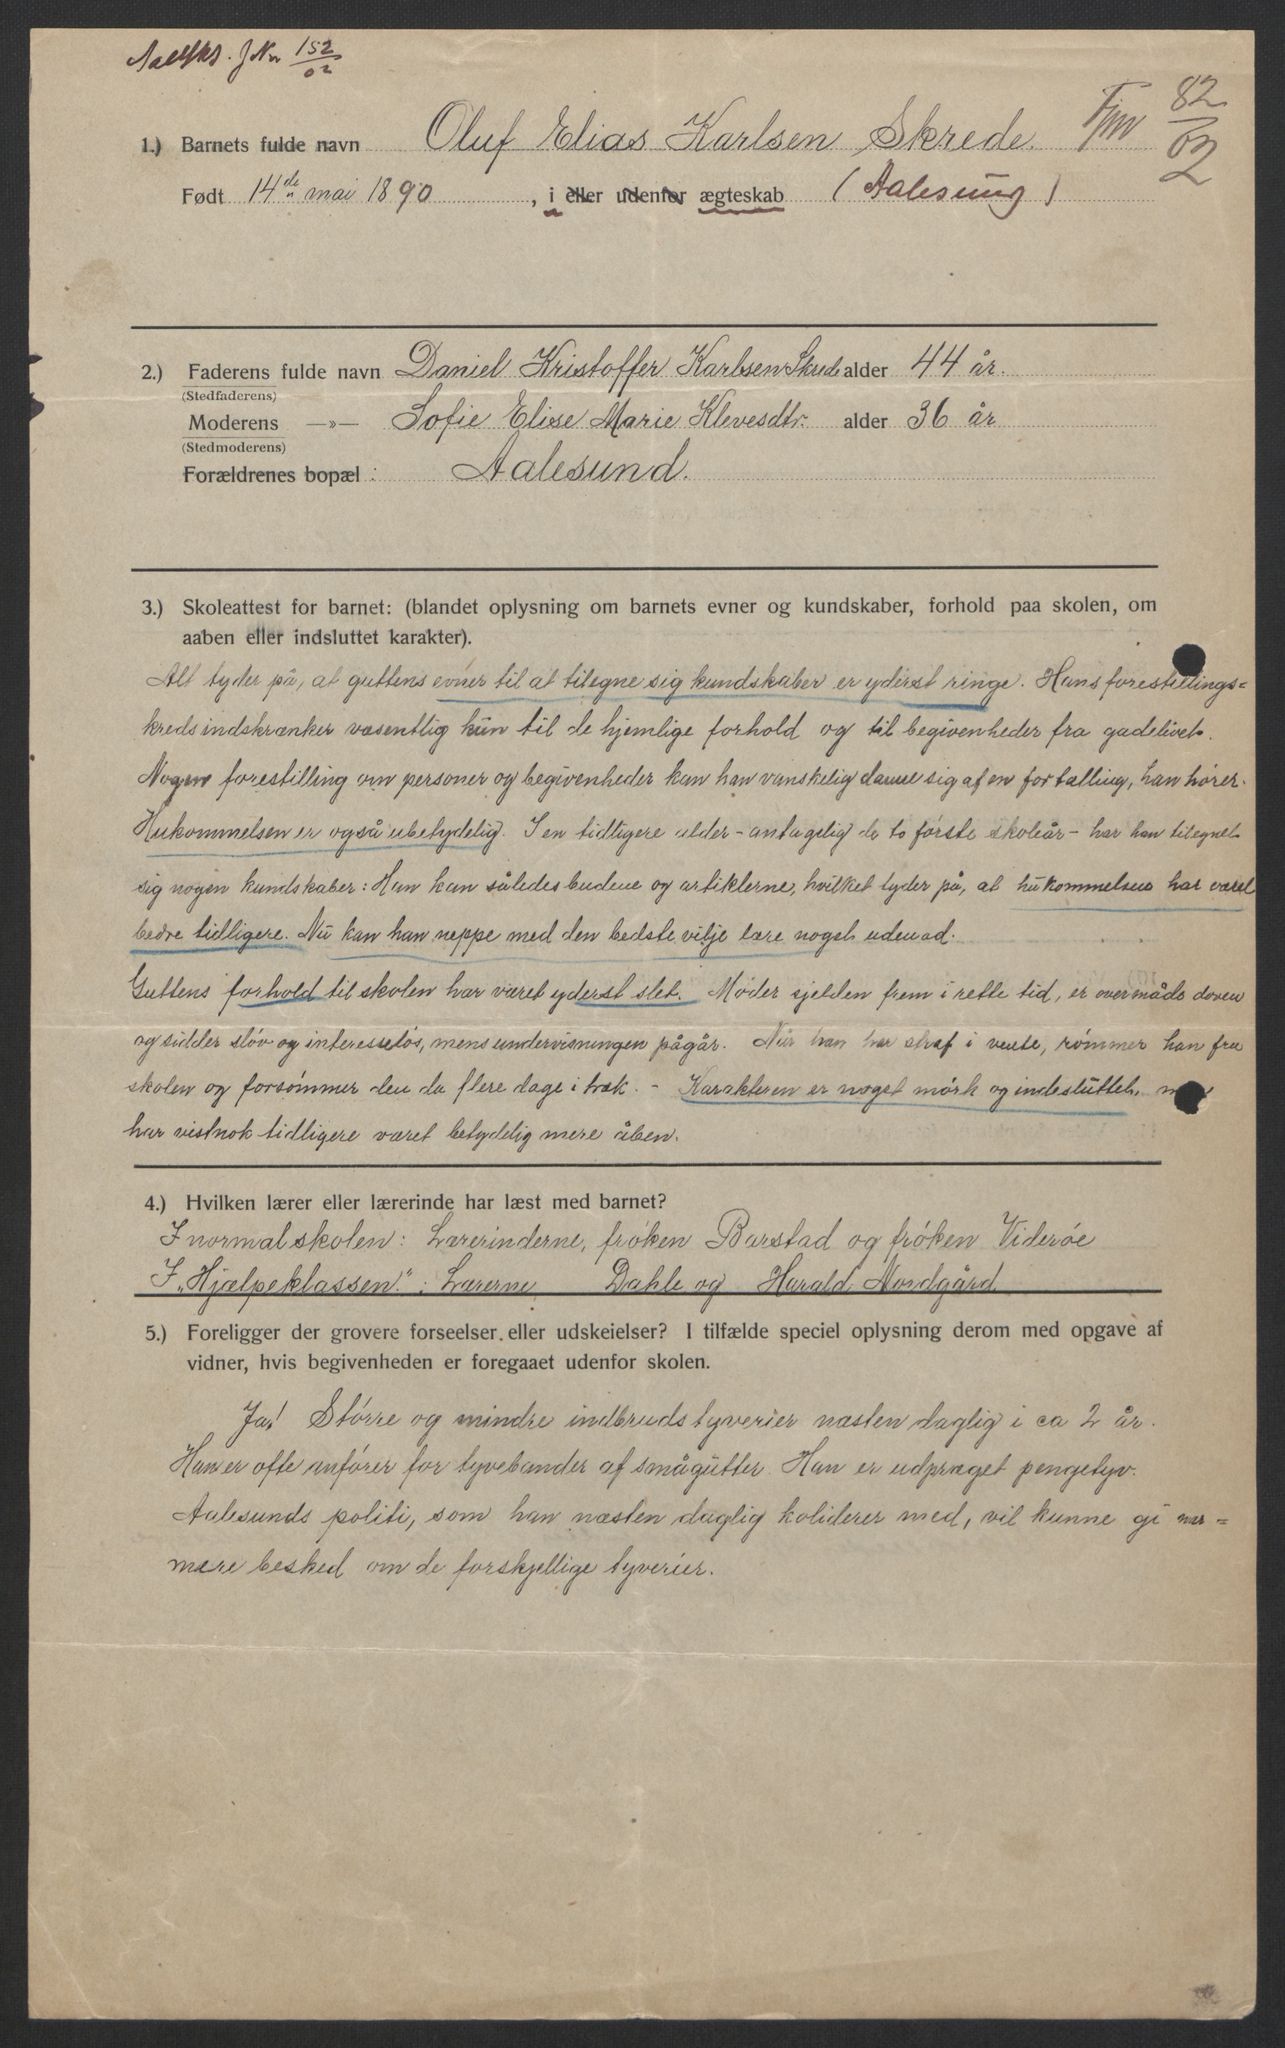 J.Nr 152/02
Fjm 82/02
1.) Barnets fulde navn Oluf Elias Karlsen Skrede.
Født 14de mai 1890, i eller udenfor ægteskab (Aalesund)
2.) Faderens fulde navn Daniel Kristoffer Karlsen Skrede alder 44 år.
(Stedfaderens)
Moderens —»— Sofie Elise Marie Klevesdtr. alder 36 år
(Stedmoderens)
Forældrenes bopæl: Aalesund.
3.) Skoleattest for barnet: (blandet oplysning om barnets evner og kundskaber, forhold paa skolen, om
aaben eller indsluttet karakter).
Alt tyder på, at guttens evner til at tilegne sig kundskaber er yderst ringe. Hans forestillings=
kreds indskrænker væsentlig kun til de hjemlige forhold og til begivenheder fra gadelivet.
Nogen forestilling om personer og begivenheder kan han vanskelig danne sig af en fortælling, han hører.
Hukommelsen er også ubetydelig. I en tidligere alder – antagelig de to første skoleår – har han tilegnet
sig nogen kundskaber: Han kan således budene og artiklerne, hvilket tyder på, at hukommelsen har været
bedre tidligere. Nu kan han neppe med den bedste vilje lære noget udenad.
Guttens forhold til skolen har været yderst slet. Møder sjelden frem i rette tid, er overmåde doven
og sidder sløv og interesseløs, mens undervisningen pågår. Når han har straf i vente, rømmer han fra
skolen og forsømmer den da flere dage i træk. – Karakteren er noget mørk og indesluttet, men
har vistnok tidligere været betydelig mere åben.
4.) Hvilken lærer eller lærerinde har læst med barnet?
I normalskolen: Lærerinderne, frøken Barstad og frøken Viderøe
I „Hjælpeklassen": Lærerne Dahle og Harald Nordgård
5.) Foreligger der grovere forseelser eller udskeielser? I tilfælde speciel oplysning derom med opgave af
vidner, hvis begivenheden er foregaaet udenfor skolen.
Ja! Større og mindre indbrudstyverier næsten daglig i ca 2 år.
Han er ofte anfører for tyvebander af smågutter. Han er udpræget pengetyv.
Aalesunds politi, som han næsten daglig koliderer med, vil kunne gi nær=
mere besked om de forskjellige tyverier.